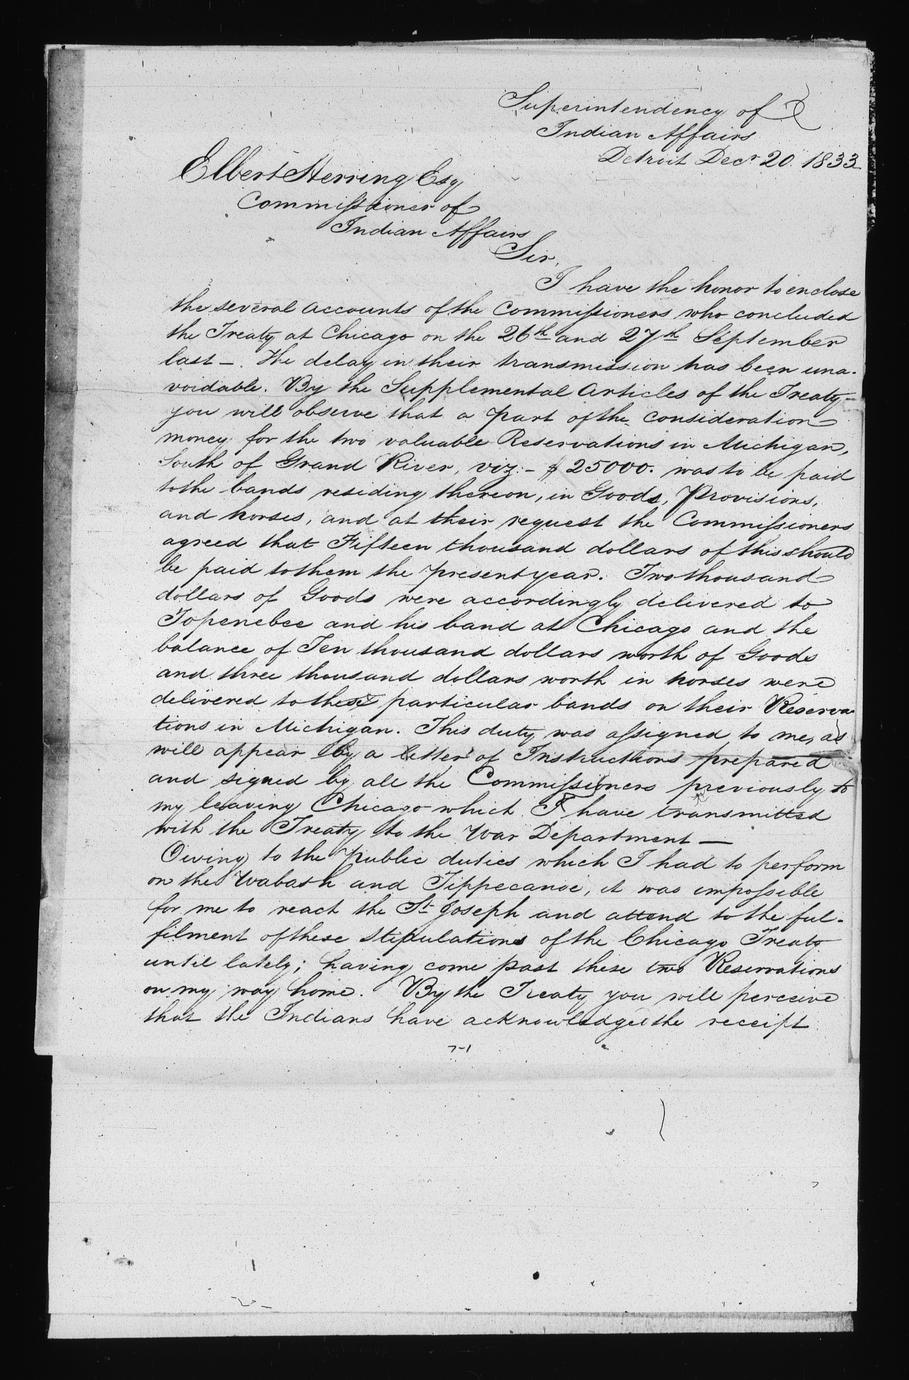 Superintendency of
Indian Affairs
Detroit Decr 20 1833
Elbert Herring Esq
Commissioner of
Indian Affairs
Sir,
I have the honor to enclose
the several accounts of the Commissioners who concluded
the Treaty at Chicago on the 26th and 27th September
last — The delay in their transmission has been una-
voidable. By the Supplemental Articles of the Treaty-
you will observe that a part of the consideration
money for the two valuable Reservations in Michigan,
South of Grand River, viz:- $25000. was to be paid
to the bands residing thereon, in Goods, Provisions,
and horses, and at their request the Commissioners
agreed that Fifteen thousand dollars of this should
be paid to them the present year. Two thousand
dollars of Goods were accordingly delivered to
Topenebee and his band at Chicago and the
balance of Ten thousand dollars worth of Goods
and three thousand dollars worth in horses were
delivered to these particular bands on their Reserva-
tions in Michigan. This duty was assigned to me, as
will appear by a letter of Instructions prepared
and signed by all the Commissioners previously to
my leaving Chicago which I have transmitted
with the Treaty to the War Department —
Owing to the public duties which I had to perform
on the Wabash and Tippecanoe, it was impossible
for me to reach the St Joseph and attend to the ful-
filment of these stipulations of the Chicago Treaty
until lately; having come past these two Reservations
on my way home. By the Treaty you will perceive
that the Indians have acknowledged the receipt